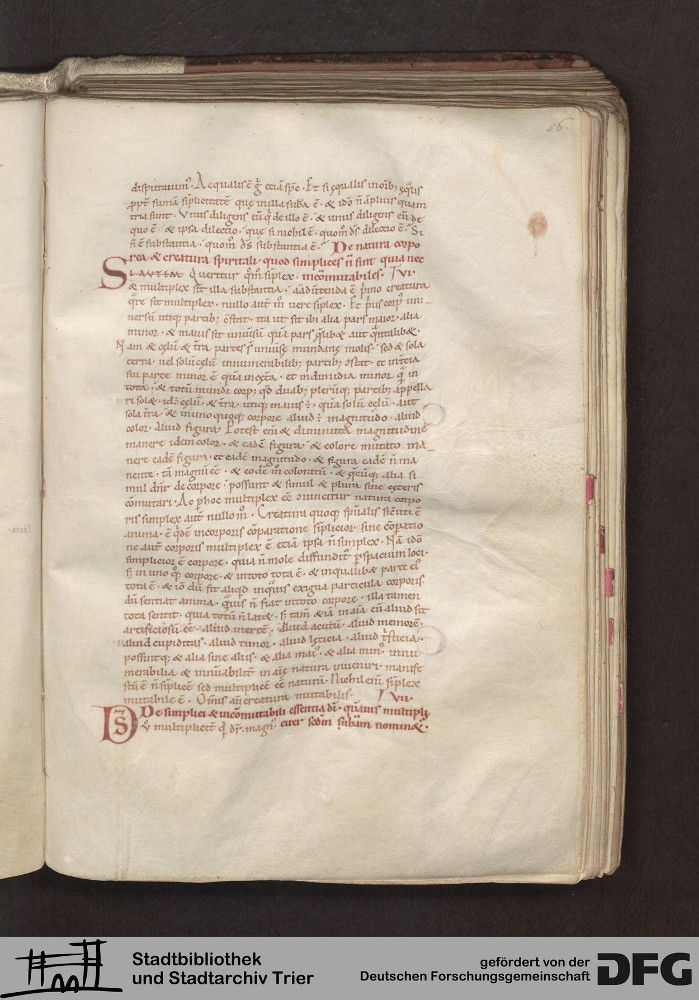 56.
disputauim᷒. Aequalis ē g̃ etiā sp̄s. Et si ęqualis in om̄ib; ęq̄lis
ꝓpt̄ sum̄ā simplicitatē quę in illa suba ē. & ido n̄ ampliꝰ quam
tria sunt. Vnus diligens eū q̄ de illo ē. & unus diligens eū de
quo ē. & ipsa dilectio. que si nichil ē. quom̄ ds̄ dilectio ē. Si
n̄ ē substantia. quom̄ ds̄ substantia ē. De natura corpo
rea & creatura spiritali. quod simplices n̄ sint quia nec
SI AUTEM Queritur qm̄ simplex. incōmutabiles. LVI.
& multiplex sit illa substantia. aīaduertenda ē p̄mo creatura
q̄re sit multiplex. nullo aut̄ m̄ uere simplex. Et p̄us corpꝰ uni
uersū utiq; partib; cstat. ita ut sit ibi alia pars maior. alia
minor. & maius sit uniūsū quā pars q̄libꝫ aut q̄ntalibꝫ.
Nam & cęlū & t̄ra partes s̄ uniūsę mundanę molis. sed & sola
terra. uel solū cęlū innumerabilib; partib; cstat. et in t̄cia
sui parte minor ē quā in cęt̄a. et in dimidia minor q̄ in
tota. & totū mundi corpꝰ qd duab; pleruq; partib; appella
ri solꝫ. id ē cęlū & t̄ra. utiq; maius ē. quā solū cęlū. aut
sola t̄ra. & in uno quoq; corpore aliud ē magnitudo. aliud
color. aliud figura. Potest eni & diminuta magnitudine
manere idem color. & eadē figura. & colore mutato ma
nere eadē figura. et eadē magnitudo. & figura eadē n̄ ma
nente. tā magnū ēē. & eodē m̄ coloratū. & q̄cūq; alia si
mul dn̄r de corpore. possunt & simul & plura sine ceteris
cōmutari. Ac ꝑ hoc multiplex ēē cuincitur natura corpo
ris simplex aut̄ nullo m̄. Creatura quoq; spūalis sicuti ē
anima. ē q̄dē in corporis cōparatione simplicior. sine cōpatio
ne aut̄ corporis multiplex ē etiā ipsa n̄ simplex. Nā ido
simplicior ē corpore. quia n̄ mole diffundit̄ p spacium loci.
s̄ in uno q̄q; corpore. & in toto tota ē. & in qualibꝫ parte eiꝰ
tota ē. & io dū fit aliqd in quis exigua particula corporis
dū sentiat anima. q̄uis n̄ fiat in toto corpore. illa tamen
tota sentit. quia totū n̄ latꝫ. s̄ tam̄ & in anima cū aliud sit
artificiosū ēē. aliud inertē. aliud acutū. aliud memorē.
aliud cupiditas. aliud timor. aliud lęticia. aliud tristicia.
possintq; & alia sine aliis. & alia magꝰ. & alia minꝰ. innu
merabilia & innūabilit̄ in aīę natura inueniri. manife
stū ē n̄ simplicē sed multiplicē ēē naturā. Nichil eni simplex
mutabile ē. Omnis aū creatura mutabilis. LVII.
De simplici & incōmutabili essentia dī. quātuis multipli
DS Vō multiplicit̄ q̄dē dr̄. magnꝰ citer sed n̄ scdm subam nominꝫ.
Stadtbibliothek
und Stadtarchiv Trier
gefördert von der
Deutschen Forschungsgemeinschaft
DFG